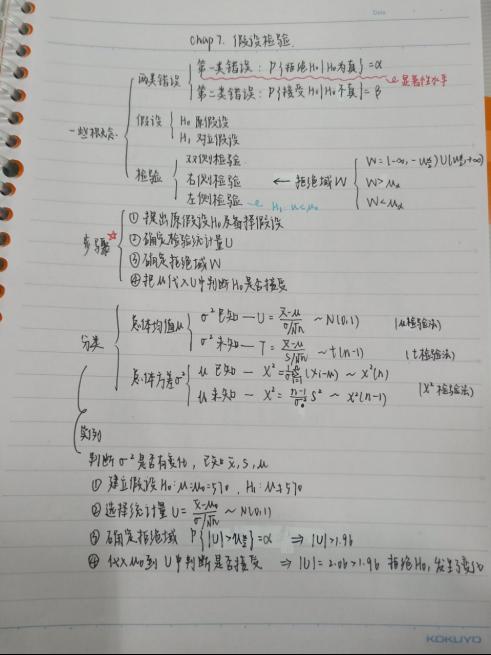 Date
Chap 7. 假设检验
一些概念
两类错误
第一类错误: P{拒绝H₀|H₀为真}=α
显著性水平
第二类错误: P{接受H₀|H₀不真}=β
假设
H₀ 原假设
H₁ 对立假设
检验
双侧检验
右侧检验
左侧检验
← 拒绝域W
W=(-∞, -u_{α/2})∪(u_{α/2}, +∞)
W>u_α
W<u_α
H₁ u<u₀
步骤
① 提出原假设H₀及备择假设
② 确定检验统计量U
③ 确定拒绝域W
④ 把u代入U中判断H₀是否接受
分类
总体均值μ
σ²已知 — U = (x̄-μ)/(σ/√n) ~ N(0,1) (u检验法)
σ²未知 — T = (x̄-μ)/(S/√n) ~ t(n-1) (t检验法)
总体方差σ²
μ已知 — X² = 1/σ² Σ(xi-μ) ~ X²(n)
μ未知 — X² = (n-1)/σ² S² ~ X²(n-1)
(X²检验法)
实例
判断σ²是否有变化, 已知x̄, S, μ
① 建立假设H₀: μ=μ₀=570, H₁: μ≠570
② 选择统计量U = (x̄-μ₀)/(σ/√n) ~ N(0,1)
③ 确定拒绝域 P{|U|>u_{α/2}}=α ⇒ |U|>1.96
④ 代入μ₀到U中判断是否接受 ⇒ |U|=2.06>1.96 拒绝H₀, 发生了变化
KOKUYO